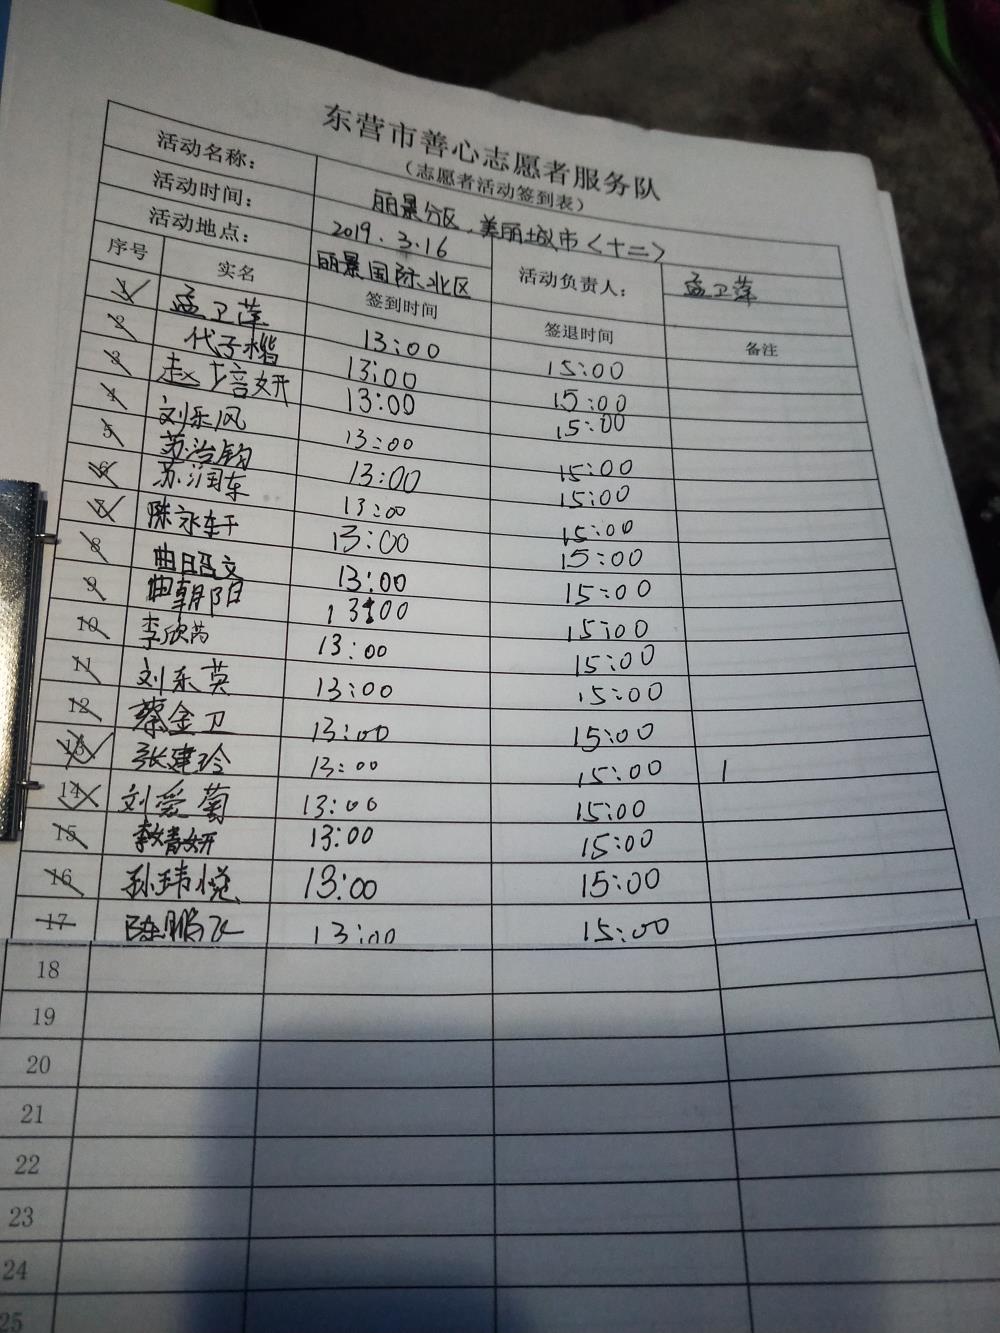 东营市善心志愿者服务队
（志愿者活动签到表）
活动名称： 丽景分区，美丽城市<十二>
活动时间： 2019.3.16 活动负责人： 孟卫萍
活动地点： 丽景国际北区
序号 实名 签到时间 签退时间 备注
1 孟卫萍 13:00 15:00
2 代子楷 13:00 15:00
3 赵培妍 13:00 15:00
4 刘乐风 13:00 15:00
5 苏治钧 13:00 15:00
6 苏润东 13:00 15:00
7 陈永轩 13:00 15:00
8 曲昭文 13:00 15:00
9 曲朝阳 13:00 15:00
10 李欣芮 13:00 15:00
11 刘东英 13:00 15:00
12 蔡金卫 13:00 15:00
13 张建玲 13:00 15:00
14 刘爱菊 13:00 15:00
15 13:00 15:00
16 孙玮悦 13:00 15:00
17 陆鹏飞 13:00 15:00
18
19
20
21
22
23
24
25